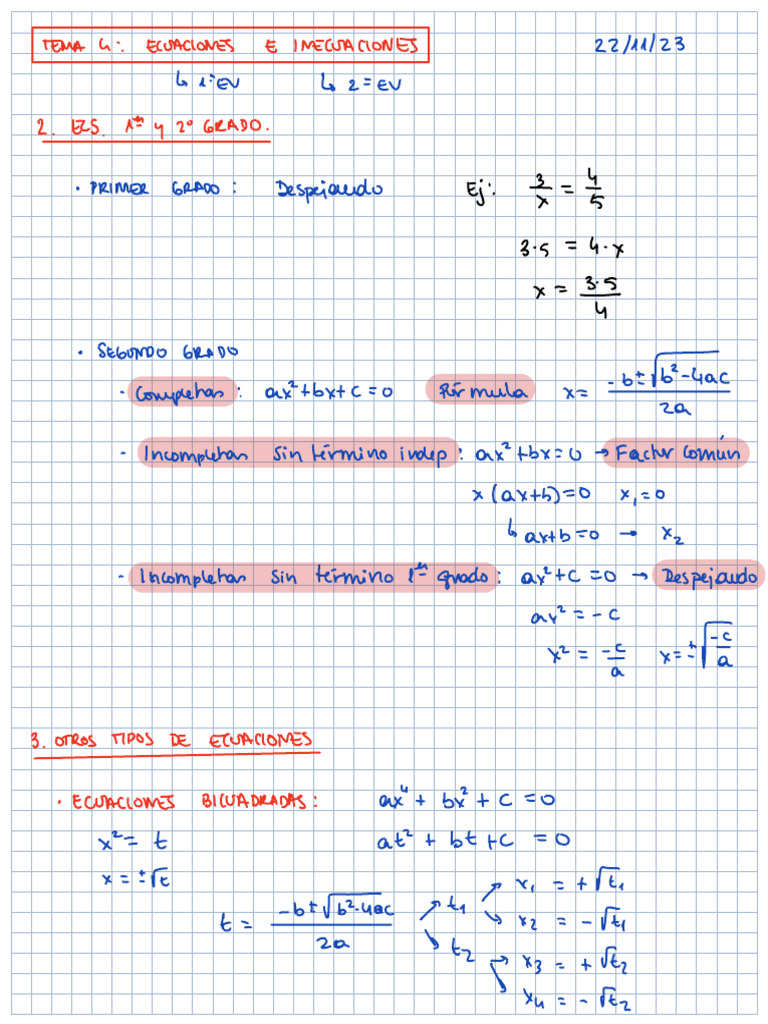 TEMA 4: ECUACIONES E INECUACIONES 22/11/23
↳ 1ªEV ↳ 2ªEV
2. ECS. 1er y 2º GRADO.
· PRIMER GRADO: Despejando Ej: 3/x = 4/5
3·5 = 4·x
x = 3·5/4
· SEGUNDO GRADO
- Completas: ax²+bx+c=0 Fórmula x= -b±√(b²-4ac)/2a
- Incompletas Sin término indep: ax²+bx=0 → Factor Común
x(ax+b)=0 x₁=0
↳ ax+b=0 → x₂
- Incompletas Sin término 1er grado: ax²+c=0 → Despejando
ax² = -c
x² = -c/a x=±√(-c/a)
3. OTROS TIPOS DE ECUACIONES
· ECUACIONES BICUADRADAS: ax⁴ + bx² + c = 0
x² = t at² + bt + c = 0
x = ±√t
t = -b±√(b²-4ac)/2a ↗ t₁ ↗ x₁ = +√t₁
↘ x₂ = -√t₁
↘ t₂ → x₃ = +√t₂
↘ x₄ = -√t₂